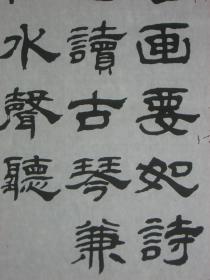 画要如詩
讀古琴兼
水聲聽